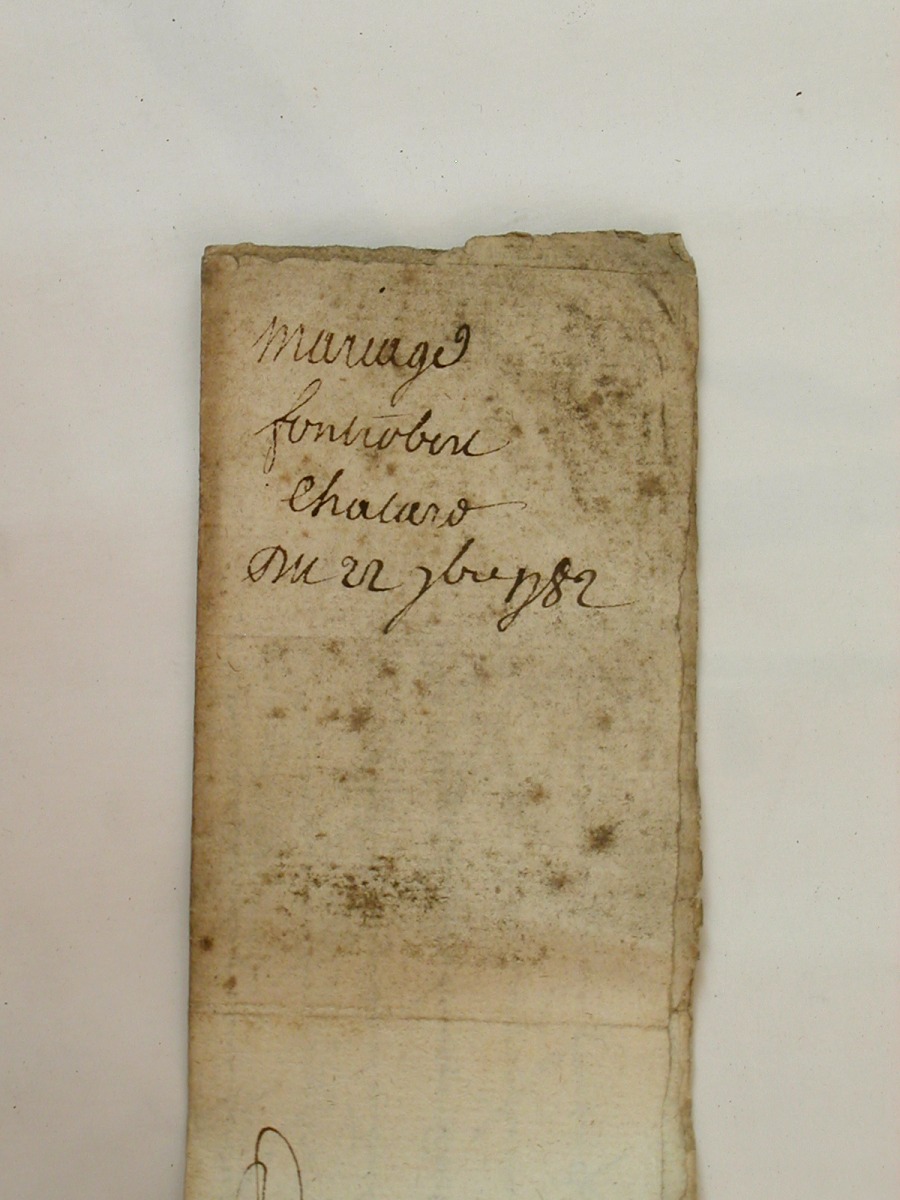 Mariage
fontrobert
Chatard
Du 22 7bre 1782